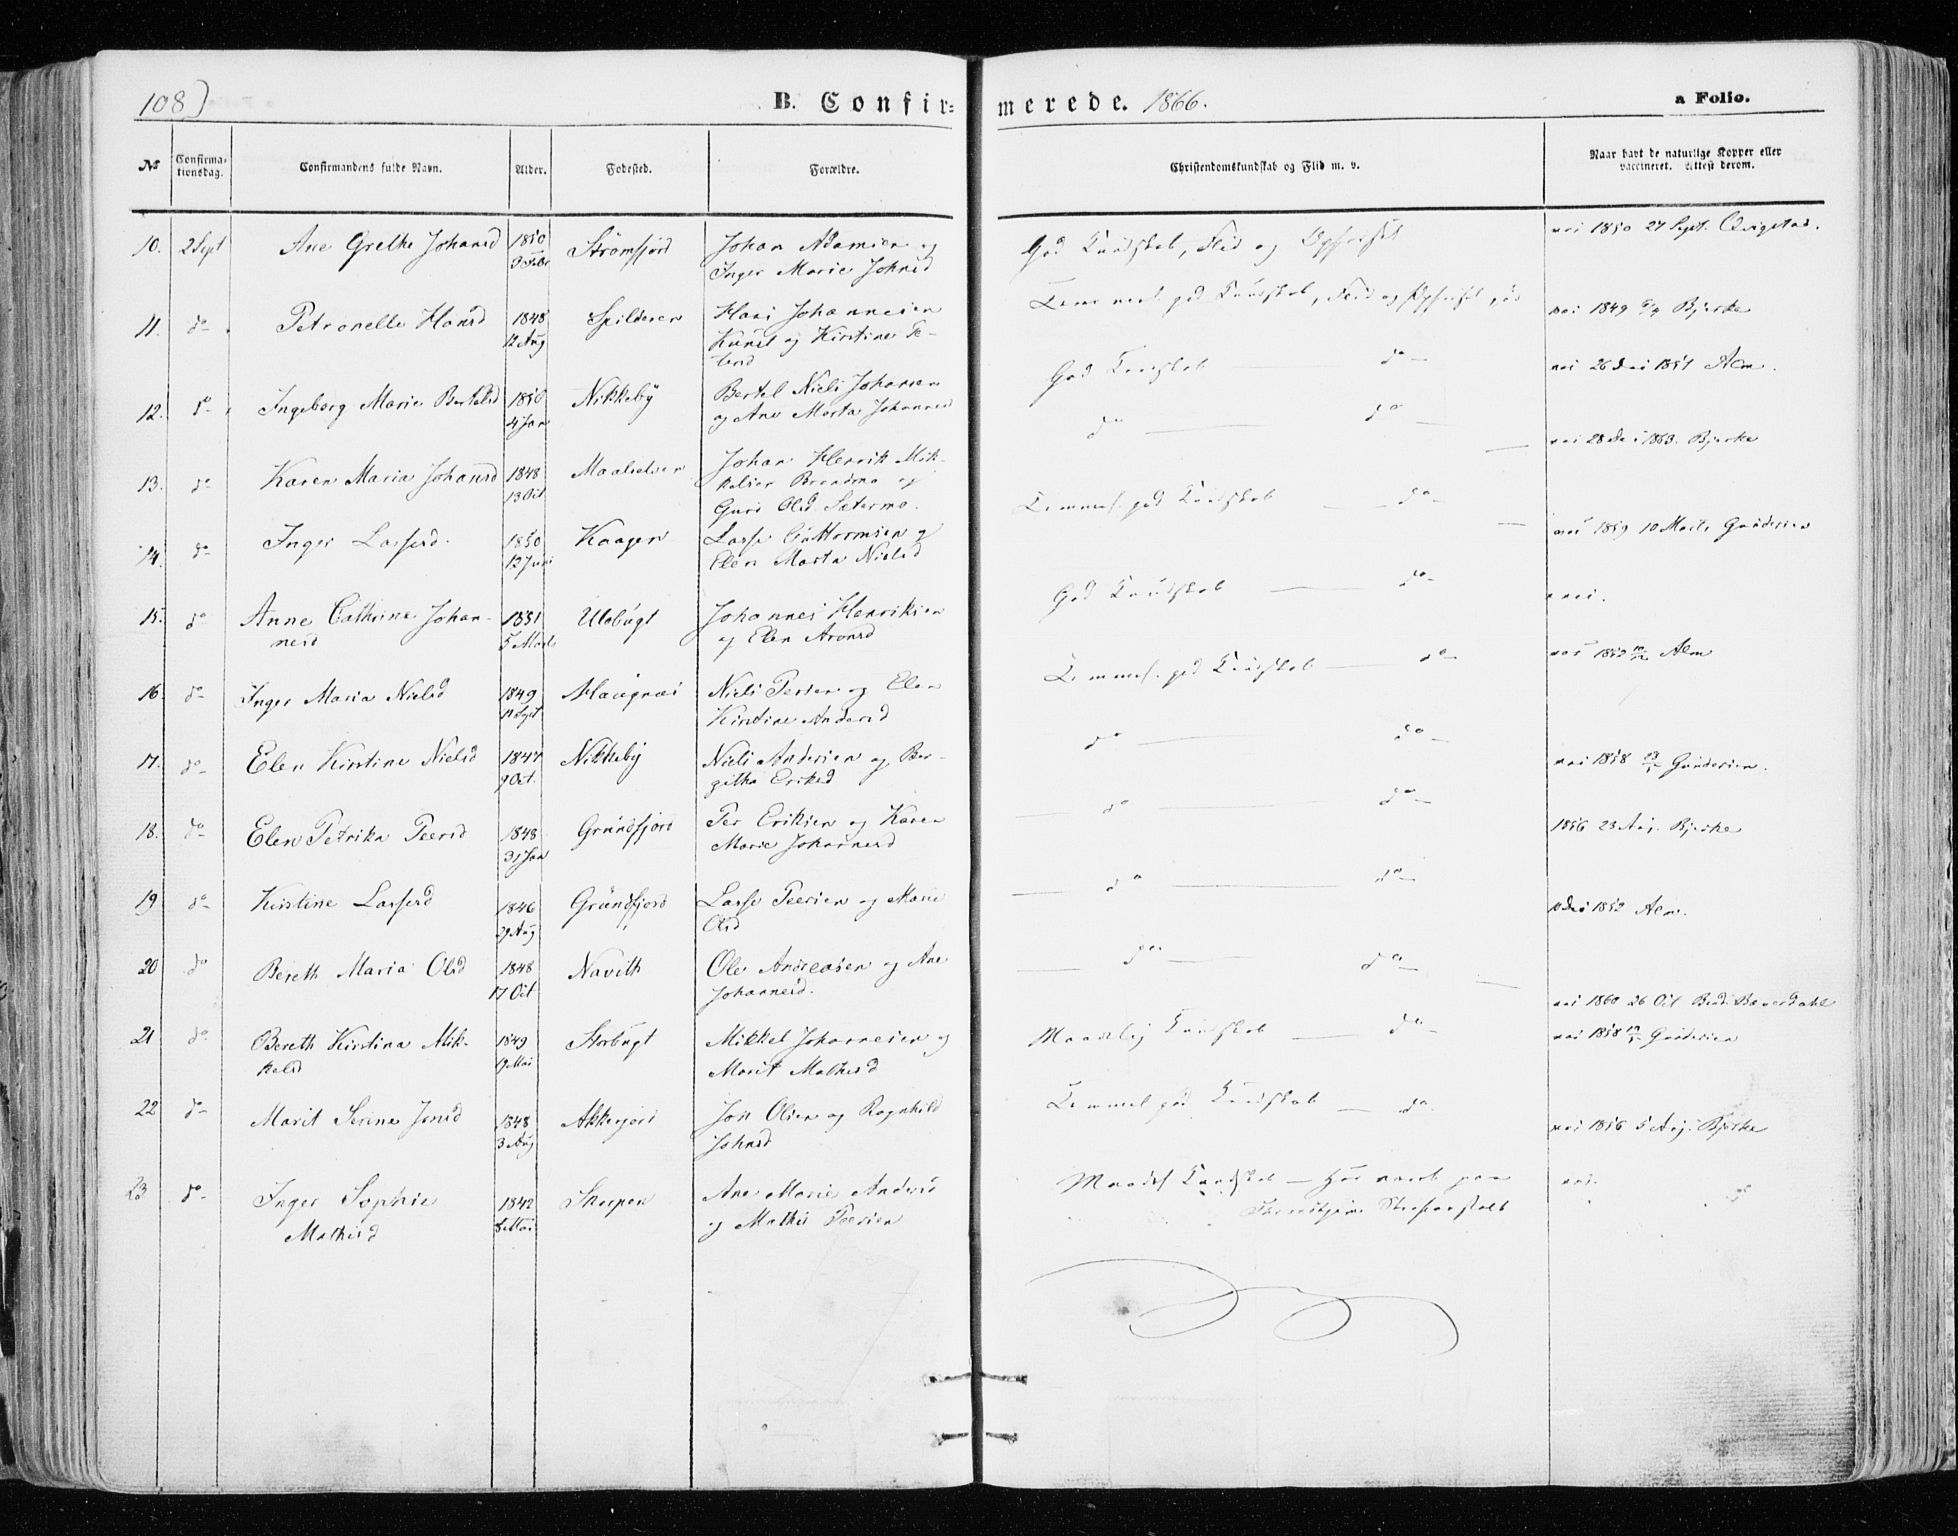 108)
B. Confir-
merede. 1866.
a Folio.
No
Confirma-
tionsdag.
Confirmandens fulde Navn.
Alder.
Fødested.
Forældre.
Christendomskundskab og Flid m. v.
Naar havt de naturlige Kopper eller
vaccineret. Attest derom.
10. 2 Sept Ane Grethe Johansd 1850 Strømfjord Johan Adamsen og
3 Febr Inger Marie Johnsd
God Kundskab, Flid og Opførsel
vac 1850 27 Sept. Qvigstad.
11. do Petronelle Hansd 1848 Spilderen Hans Johannesen
12 Aug Kunst og Kirstine Pe-
tersd
Temmel. god Kundskab, Flid og Opførsel
vac 1849 Bjerke
12. do Ingeborg Marie Bertelsd 1850 Nikkeby Bertel Niels Johansen
4 Jan og Ane Marta Johannesd
God Kundskab — do —
vac 26 1851 Alm.
13. do Karen Maria Johansd 1848 Maalselven Johan Henrik Mik-
13 Oct kelsen Brandmo og
Guro Olsd Sætermo.
do — do —
vac 28 1863. Bjerke
14. do Inger Lassesd. 1850 Kaagen Lasse Guttormsen og
12 Juni Elen Marta Nielsd
Temmel. god Kundskab — do —
vac 1859 10 Marts Gundersen
15. do Anne Cathrine Johan- 1851 Ulobugt Johannes Henriksen
nesd 5 Marts og Elen Aronsd
God Kundskab — do —
vac.
16. do Inger Maria Nielsd 1849 Haugnæs Niels Persen og Elen
11 Sept Kirstine Andersd
Temmel. god Kundskab — do —
vac 1852 Alm
17. do Elen Kirstine Nielsd 1847 Nikkeby Niels Andersen og Ber-
9 Oct. githa Eriksd
do — do —
vac 1858 Gundersen.
18. do Elen Petrika Peersd 1848 Grundfjord Per Eriksen og Karen
31 Jan Marie Johannesd
— do — do —
1856 23 Aug. Bjerke
19 do Kirstine Lassesd 1846 Grundfjord Lasse Peersen og Marie
29 Aug Olsd
— do — do —
1852 Alm.
20 do Bereth Maria Olsd 1848 Navith Ole Andreasen og Ane
17 Oct Johannesd.
— do — do —
vac 1860 26 Oct Bend. Baverdahl
21 do Bereth Kirstina Mik- 1849 Storbugt Mikkel Johannesen og
kelsd 19 Mai Marit Mathisd
Maadelig Kundskab — do —
vac 1858 Gundersen
22 do Marit Serine Jonsd 1848 Akkerfjord Jon Olsen og Ragnhild
3 Aug Johnsd
Temmel god Kundskab — do —
vac 1856 5 Aug. Bjerke
23 do Inger Sophie 1842 Skorpen Ane Marie Andersd
Mathisd 8 Mai og Mathis Peersen
Maadel Kundskab — Har været paa
Throndhjems Strafanstalt
vac.